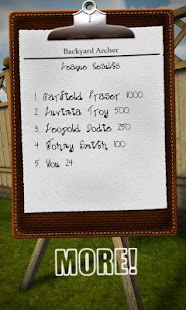 Backyard Archer
League Results
1. Garfield Fraser 1000
2. Luvinia Troy 500
3. Leopold Dodie 250
4. Tommy Smith 100
5. You 24
MORE!